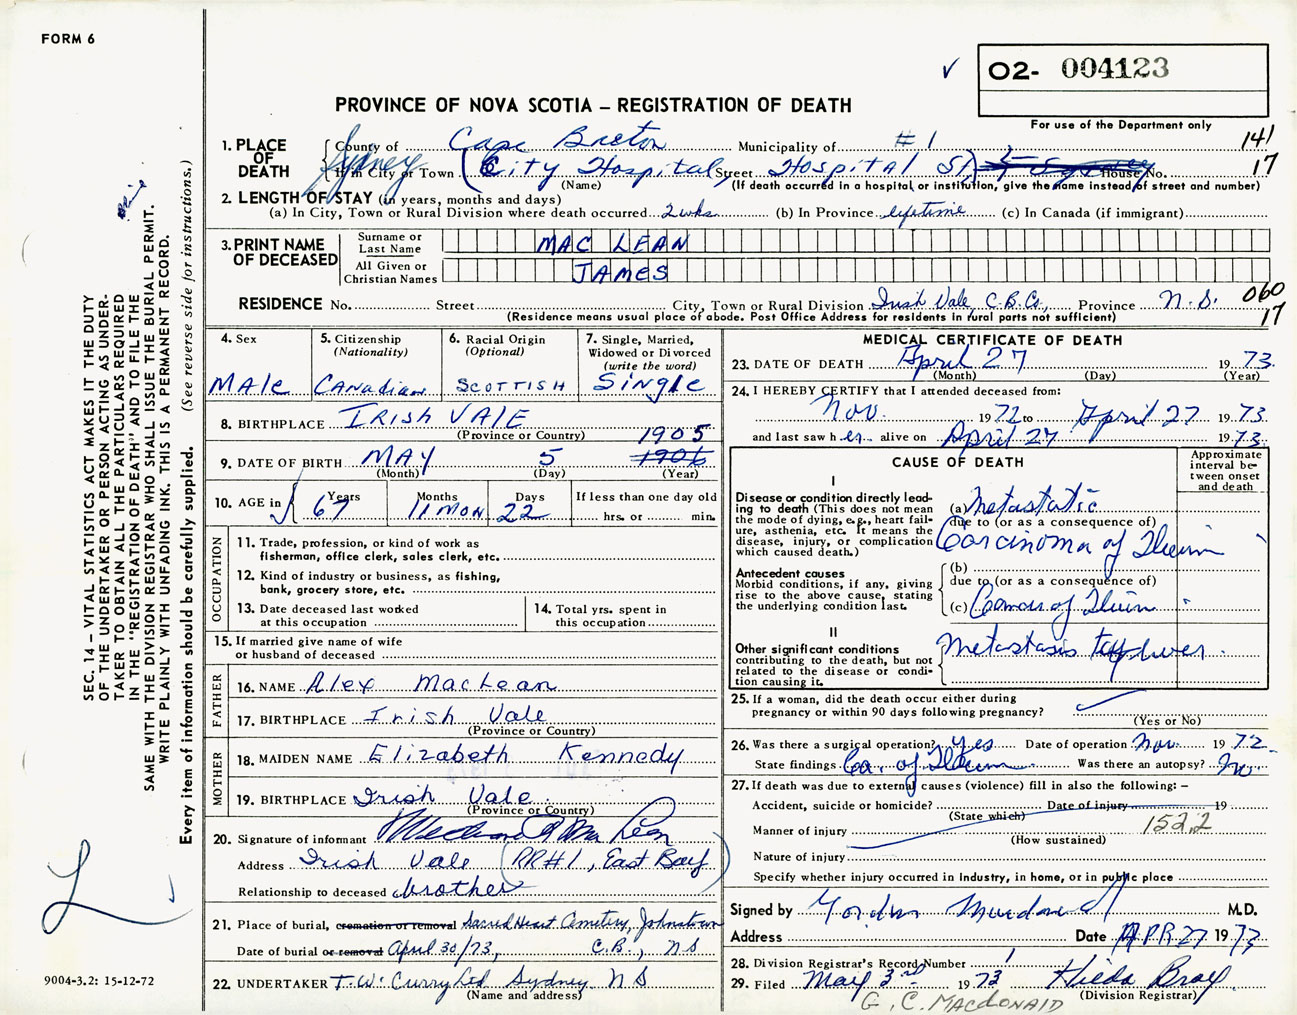 FORM 6
✓
O2- 004123
PROVINCE OF NOVA SCOTIA – REGISTRATION OF DEATH
For use of the Department only
1. PLACE OF DEATH
County of Cape Breton Municipality of # 1 141
If in City or Town Sydney (City Hospital, Street Hospital St) House No. 17
(Name) (If death occurred in a hospital or institution, give the name instead of street and number)
2. LENGTH OF STAY (in years, months and days)
(a) In City, Town or Rural Division where death occurred 2 wks (b) In Province lifetime (c) In Canada (if immigrant)
3. PRINT NAME OF DECEASED
Surname or Last Name MAC LEAN
All Given or Christian Names JAMES
RESIDENCE No. Street City, Town or Rural Division Irish Vale, C.B. Co., Province N.S. 060
(Residence means usual place of abode. Post Office Address for residents in rural parts not sufficient) 17
4. Sex MALE
5. Citizenship (Nationality) CANADIAN
6. Racial Origin (Optional) SCOTTISH
7. Single, Married, Widowed or Divorced (write the word) SINGLE
8. BIRTHPLACE IRISH VALE
(Province or Country)
9. DATE OF BIRTH MAY 5 1905 1906
(Month) (Day) (Year)
10. AGE in Years 67 Months 11 MON Days 22 If less than one day old hrs. or min.
OCCUPATION
11. Trade, profession, or kind of work as fisherman, office clerk, sales clerk, etc.
12. Kind of industry or business, as fishing, bank, grocery store, etc.
13. Date deceased last worked at this occupation
14. Total yrs. spent in this occupation
15. If married give name of wife or husband of deceased
FATHER
16. NAME Alex MacLean
17. BIRTHPLACE Irish Vale
(Province or Country)
MOTHER
18. MAIDEN NAME Elizabeth Kennedy
19. BIRTHPLACE Irish Vale
(Province or Country)
20. Signature of informant
Address Irish Vale (RR#1, East Bay)
Relationship to deceased brother
21. Place of burial, cremation or removal Sacred Heart Cemetery, Johnstown
Date of burial or removal April 30/73, C.B., NS
22. UNDERTAKER T.W. Curry Ltd Sydney NS
(Name and address)
MEDICAL CERTIFICATE OF DEATH
23. DATE OF DEATH April 27 1973
(Month) (Day) (Year)
24. I HEREBY CERTIFY that I attended deceased from:
Nov. 1972 to April 27 1973
and last saw h alive on April 27 1973
CAUSE OF DEATH
Approximate interval between onset and death
I
Disease or condition directly leading to death (This does not mean the mode of dying, e.g., heart failure, asthenia, etc. It means the disease, injury, or complication which caused death.)
(a) Metastatic
due to (or as a consequence of)
Carcinoma of Ileum
Antecedent causes
Morbid conditions, if any, giving rise to the above cause, stating the underlying condition last.
(b)
due to (or as a consequence of)
(c) Cancer of Ileum
II
Other significant conditions contributing to the death, but not related to the disease or condition causing it.
Metastasis to liver
25. If a woman, did the death occur either during pregnancy or within 90 days following pregnancy?
(Yes or No)
26. Was there a surgical operation? Yes Date of operation Nov. 1972
State findings Ca. of Ileum Was there an autopsy? No
27. If death was due to external causes (violence) fill in also the following: –
Accident, suicide or homicide? Date of injury 19
(State which)
Manner of injury 152.2
(How sustained)
Nature of injury
Specify whether injury occurred in Industry, in home, or in public place
Signed by M.D.
Address Date APR 27 1973
28. Division Registrar's Record Number 1
29. Filed May 3rd 1973 Hilda Bray
(Division Registrar)
G. C. MACDONALD
SEC. 14 – VITAL STATISTICS ACT MAKES IT THE DUTY
OF THE UNDERTAKER OR PERSON ACTING AS UNDER-
TAKER TO OBTAIN ALL THE PARTICULARS REQUIRED
IN THE "REGISTRATION OF DEATH" AND TO FILE THE
SAME WITH THE DIVISION REGISTRAR WHO SHALL ISSUE THE BURIAL PERMIT.
WRITE PLAINLY WITH UNFADING INK. THIS IS A PERMANENT RECORD.
Every item of information should be carefully supplied. (See reverse side for instructions.)
L
9004-3.2: 15-12-72